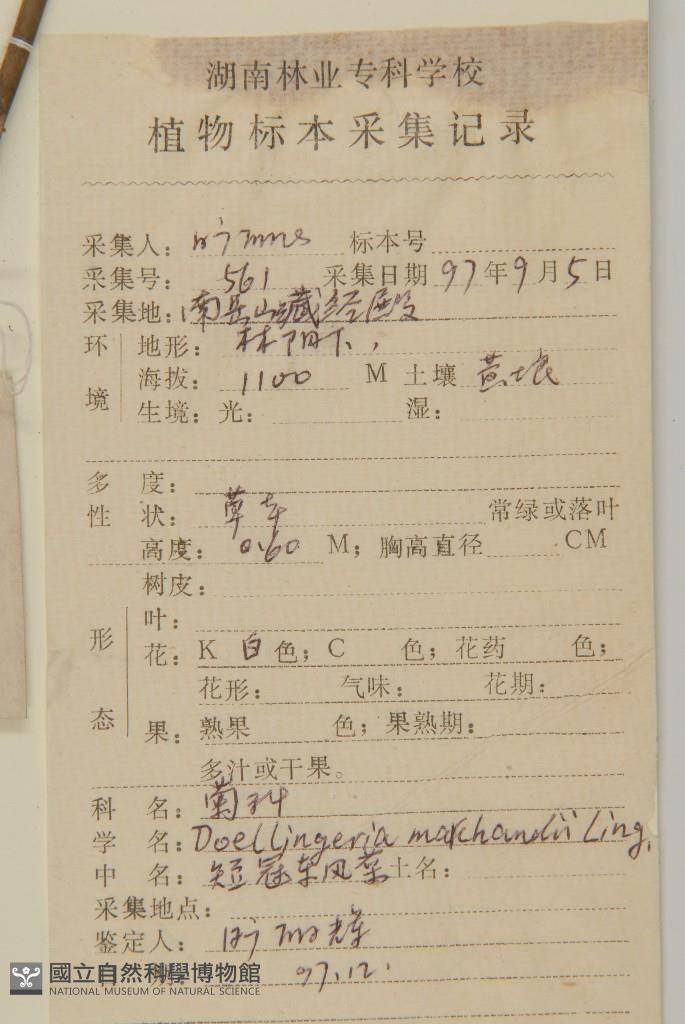 湖南林业专科学校
植物标本采集记录
采集人： 标本号
采集号： 561 采集日期 97年9月5日
采集地：南岳山藏经殿
环境 地形： 林阴下，
海拔： 1100 M 土壤 黄壤
生境：光： 湿：
多 度：
性 状： 草本 常绿或落叶
高度： 0.60 M；胸高直径 CM
树皮：
形态 叶：
花：K 白色；C 色；花药 色；
花形： 气味： 花期：
果：熟果 色；果熟期：
多汁或干果。
科 名：菊科
学 名：Doellingeria marchandii Ling.
中 名：短冠东风菜 土名：
采集地点：
鉴定人：
期： 97.12.
國立自然科學博物館
NATIONAL MUSEUM OF NATURAL SCIENCE